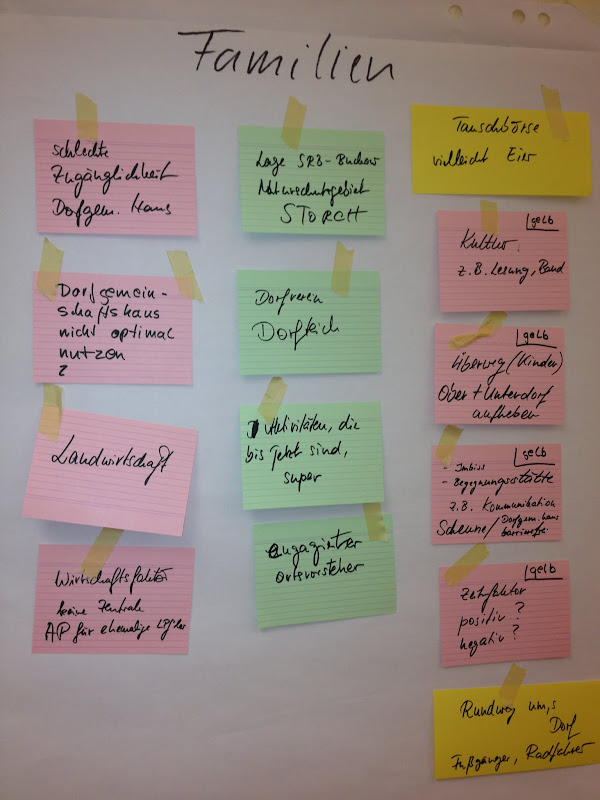 Familien
schlechte
Zugänglichkeit
Dorfgem. Haus
Dorfgemein-
schaftshaus
nicht optimal
nutzen
?
Landwirtschaft
Wirtschaftsfaktor
keine Zentrale
AP für ehemalige
Lage SRB-Buckow
Naturschutzgebiet
STORCH
Dorfverein
Dorfteich
Aktivitäten, die
bis jetzt sind,
super
engagierter
Ortsvorsteher
Tauschbörse
vielleicht Eier
gelb
Kultur
z.B. Lesung, Band
gelb
Überweg (Kinder)
Ober + Unterdorf
aufheben
gelb
- Imbiss
- Begegnungsstätte
z.B. Kommunikation
Scheune/Dorfgem.haus
barrierefrei
gelb
Zeitfaktor
positiv?
negativ?
Rundweg um,s
Dorf
Fußgänger, Radfahrer